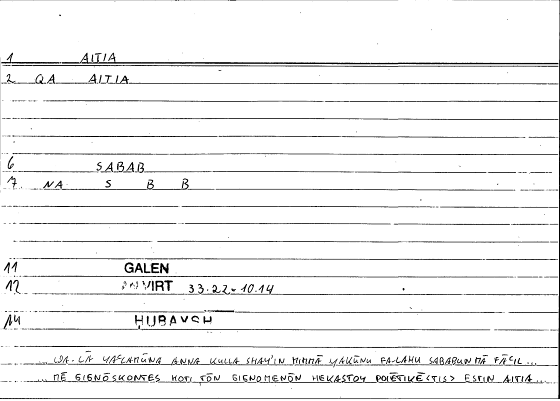 1 AITIA
2 QA AITIA
6 SABAB
7 NA S B B
11 GALEN
12 AN VIRT 33.22-10.14
14 HUBAYSH
... WA-LĀ YAʿLAMŪNA ANNA KULLA SHAY'IN MIMMĀ YAKŪNU FA-LAHU SABABUN MĀ FĀʿIL ...
... MĒ GIGNŌSKONTES HOTI TŌN GIGNOMENŌN HEKASTOY POIĒTIKĒ <TIS> ESTIN AITIA ...